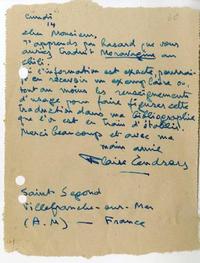 Lundi
14
cher Monsieur,
J'apprends par hasard que vous
auriez traduit Moravagine au
chili.
Si l'information est exacte, pourrais-
je en recevoir un exemplaire ou,
tout au moins les renseignements
d'usage pour faire figurer cette
traduction dans ma bibliographie
que l'on est en train d'établir.
Merci beaucoup et avec ma
main amie
Blaise Cendrars
Saint-Segond
Villefranche-sur-Mer
(A.M) — France